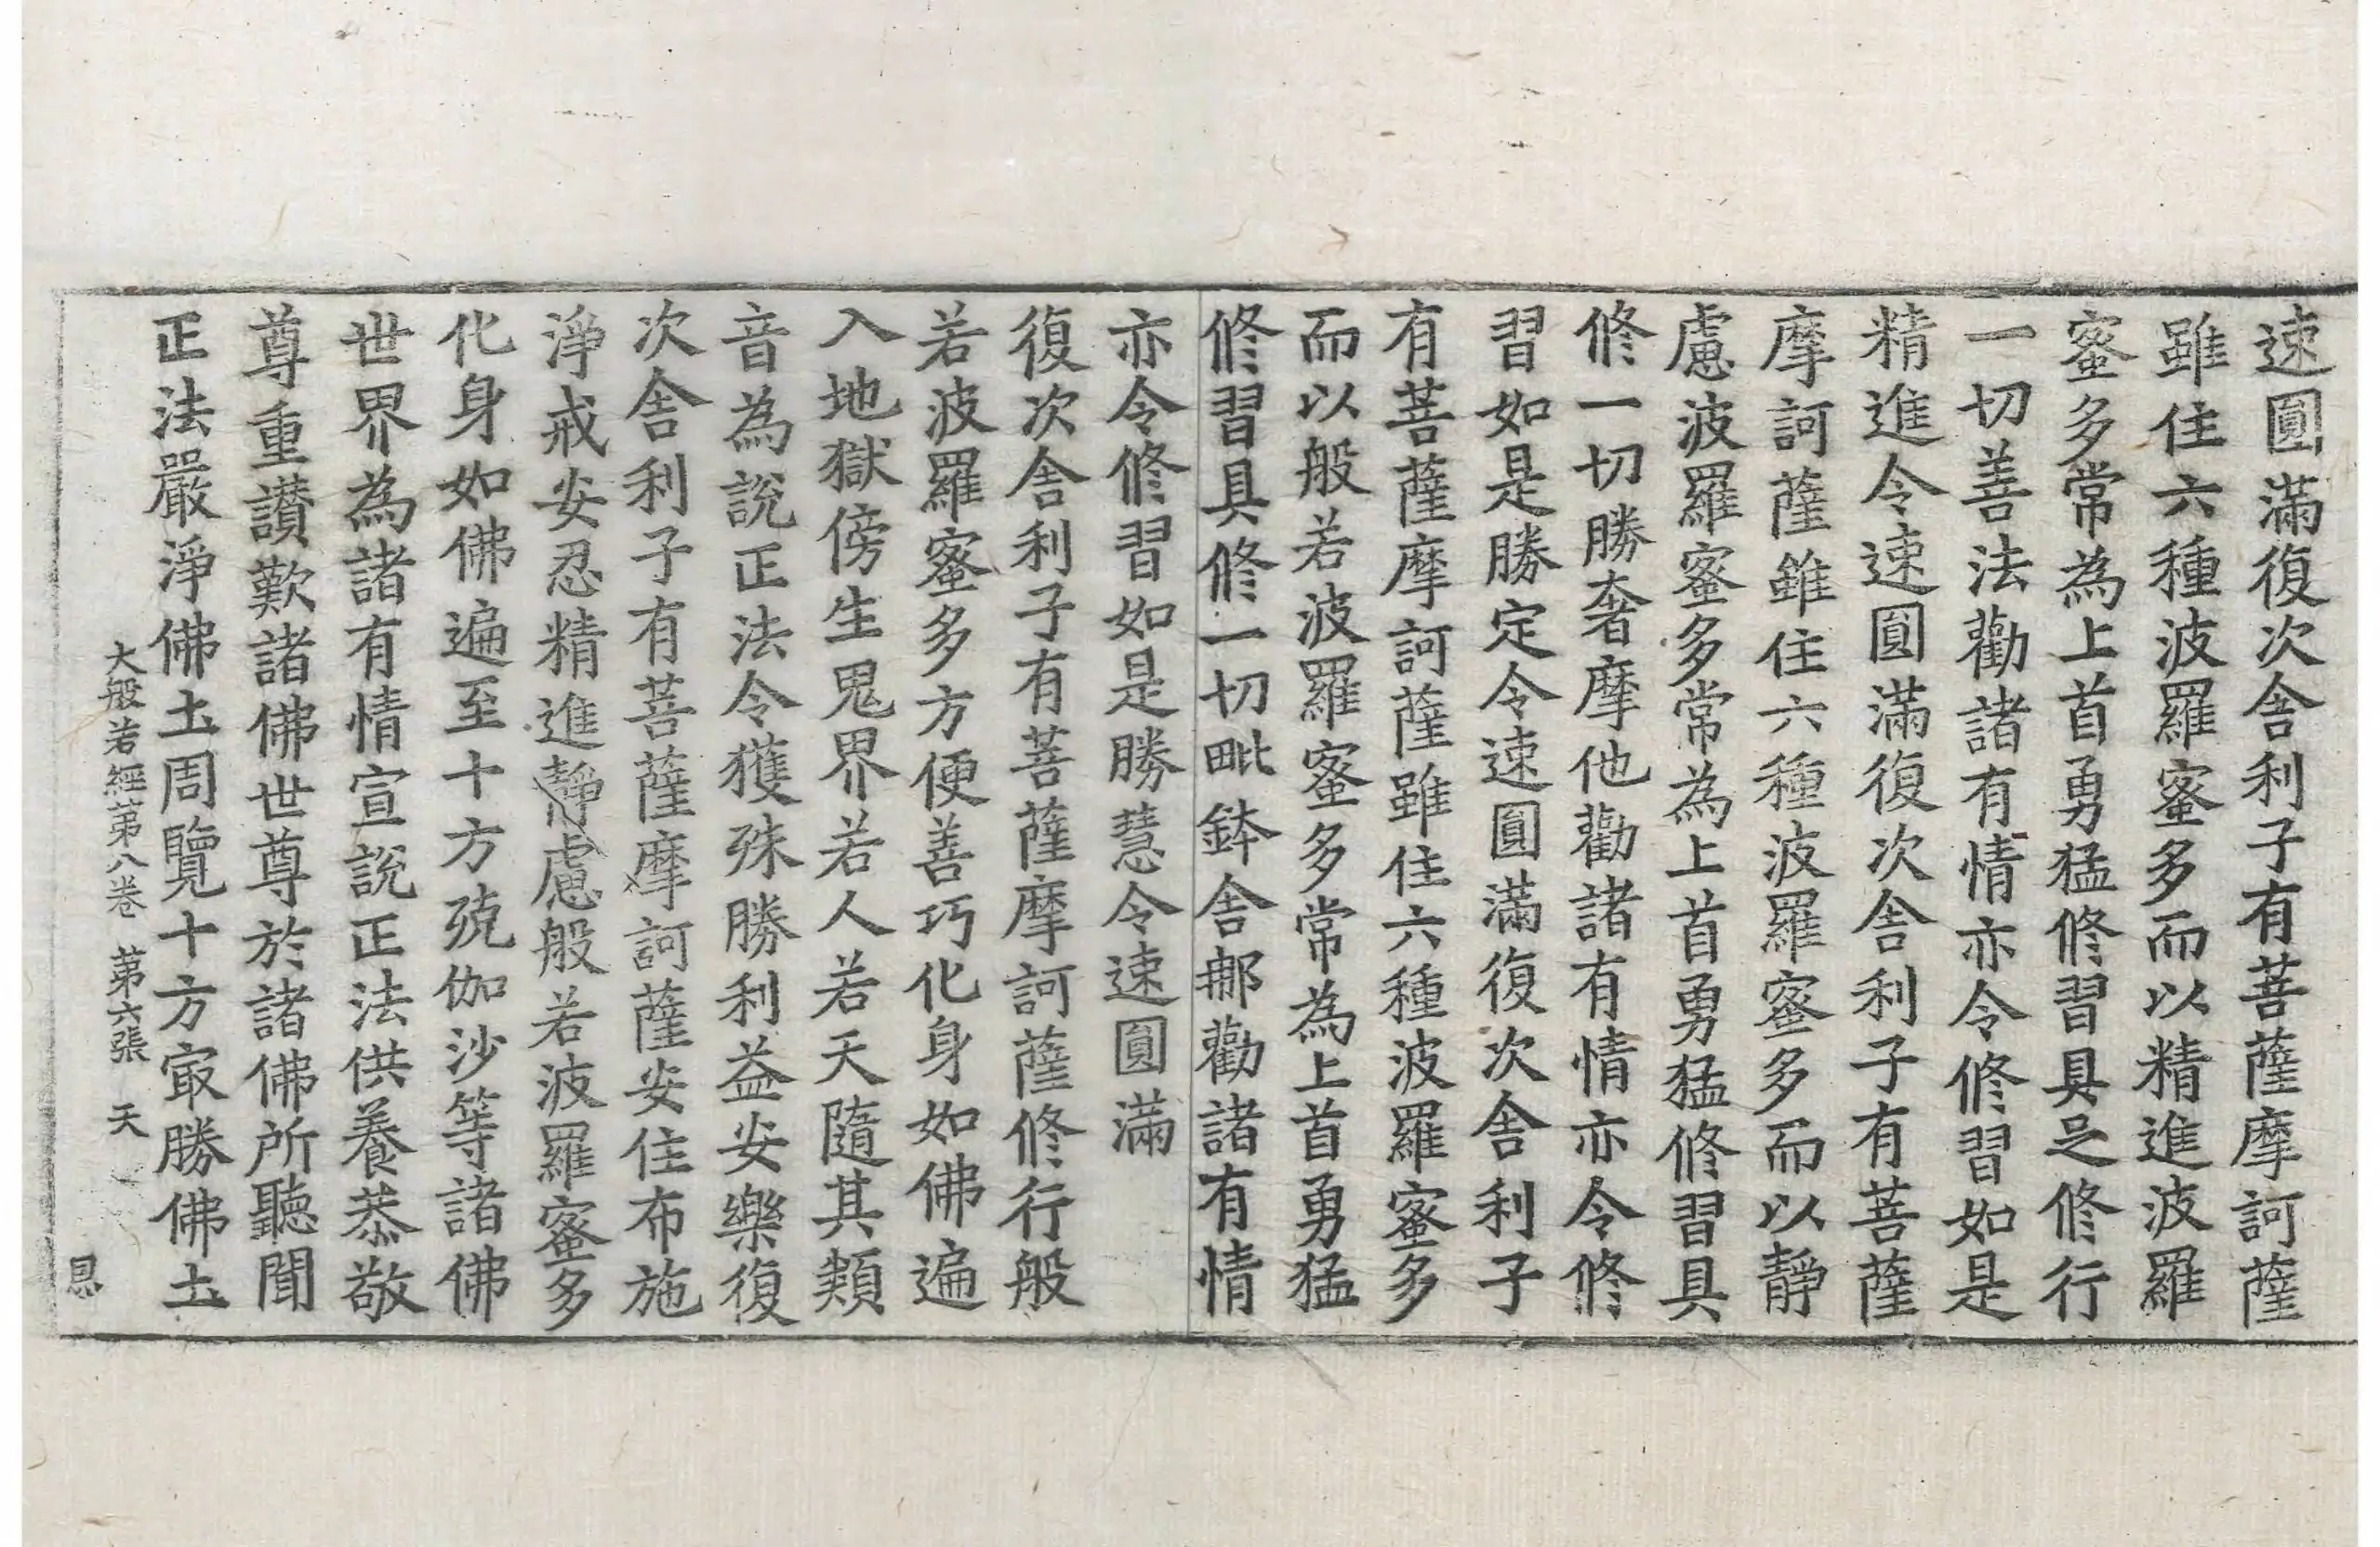 速圓滿復次舍利子有菩薩摩訶薩
雖住六種波羅蜜多而以精進波羅
蜜多常為上首勇猛修習具足修行
一切善法勸諸有情亦令修習如是
精進令速圓滿復次舍利子有菩薩
摩訶薩雖住六種波羅蜜多而以靜
慮波羅蜜多常為上首勇猛修習具
修一切勝奢摩他勸諸有情亦令修
習如是勝定令速圓滿復次舍利子
有菩薩摩訶薩雖住六種波羅蜜多
而以般若波羅蜜多常為上首勇猛
修習具修一切毗鉢舍那勸諸有情
亦令修習如是勝慧令速圓滿
復次舍利子有菩薩摩訶薩修行般
若波羅蜜多方便善巧化身如佛遍
入地獄傍生鬼界若人若天隨其類
音為說正法令獲殊勝利益安樂復
次舍利子有菩薩摩訶薩安住布施
淨戒安忍精進靜慮般若波羅蜜多
化身如佛遍至十方殑伽沙等諸佛
世界為諸有情宣說正法供養恭敬
尊重讃歎諸佛世尊於諸佛所聽聞
正法嚴淨佛土周覽十方㝡勝佛土
大般若經第八卷 第六張 天
思